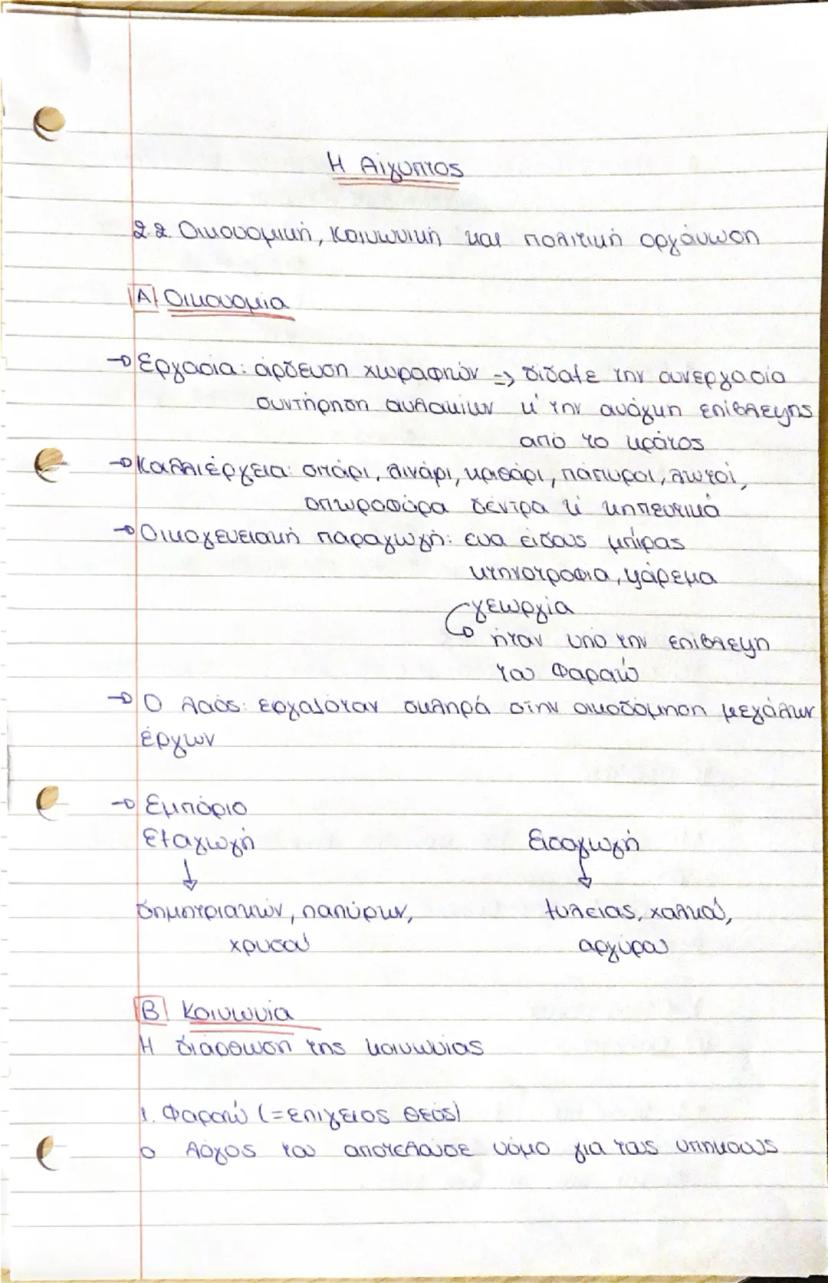 Η Αίγυπτος
2.2 Οικονομική, κοινωνική και πολιτική οργάνωση
Α Οικονομία
→ Εργασία: άρδευση χωραφιών => δίδαξε την συνεργασία
συντήρηση αυλακιών κ' την ανάγκη επίβλεψης
από το κράτος
→ Καλλιέργεια: σιτάρι, λινάρι, κριθάρι, πάπυροι, λωτοί,
οπωροφόρα δέντρα κ' κηπευτικά
→ Οικογενειακή παραγωγή: ενα είδους μπίρας
κτηνοτροφια, ψάρεμα
γεωργία
→ ήταν υπό την επίβλεψη
του Φαραώ
→ Ο λαός: εργαζόταν σκληρά στην οικοδόμηση μεγάλων
έργων
→ Εμπόριο
Εξαγωγή Εισαγωγή
↓ ↓
δημητριακών, παπύρων, ξυλείας, χαλκού,
χρυσού αργύρου
Β Κοινωνία
Η διάρθωση της κοινωνίας
1. Φαραώ (=επιγειος θεός)
ο λόγος του αποτελούσε νόμο για τους υπηκοους